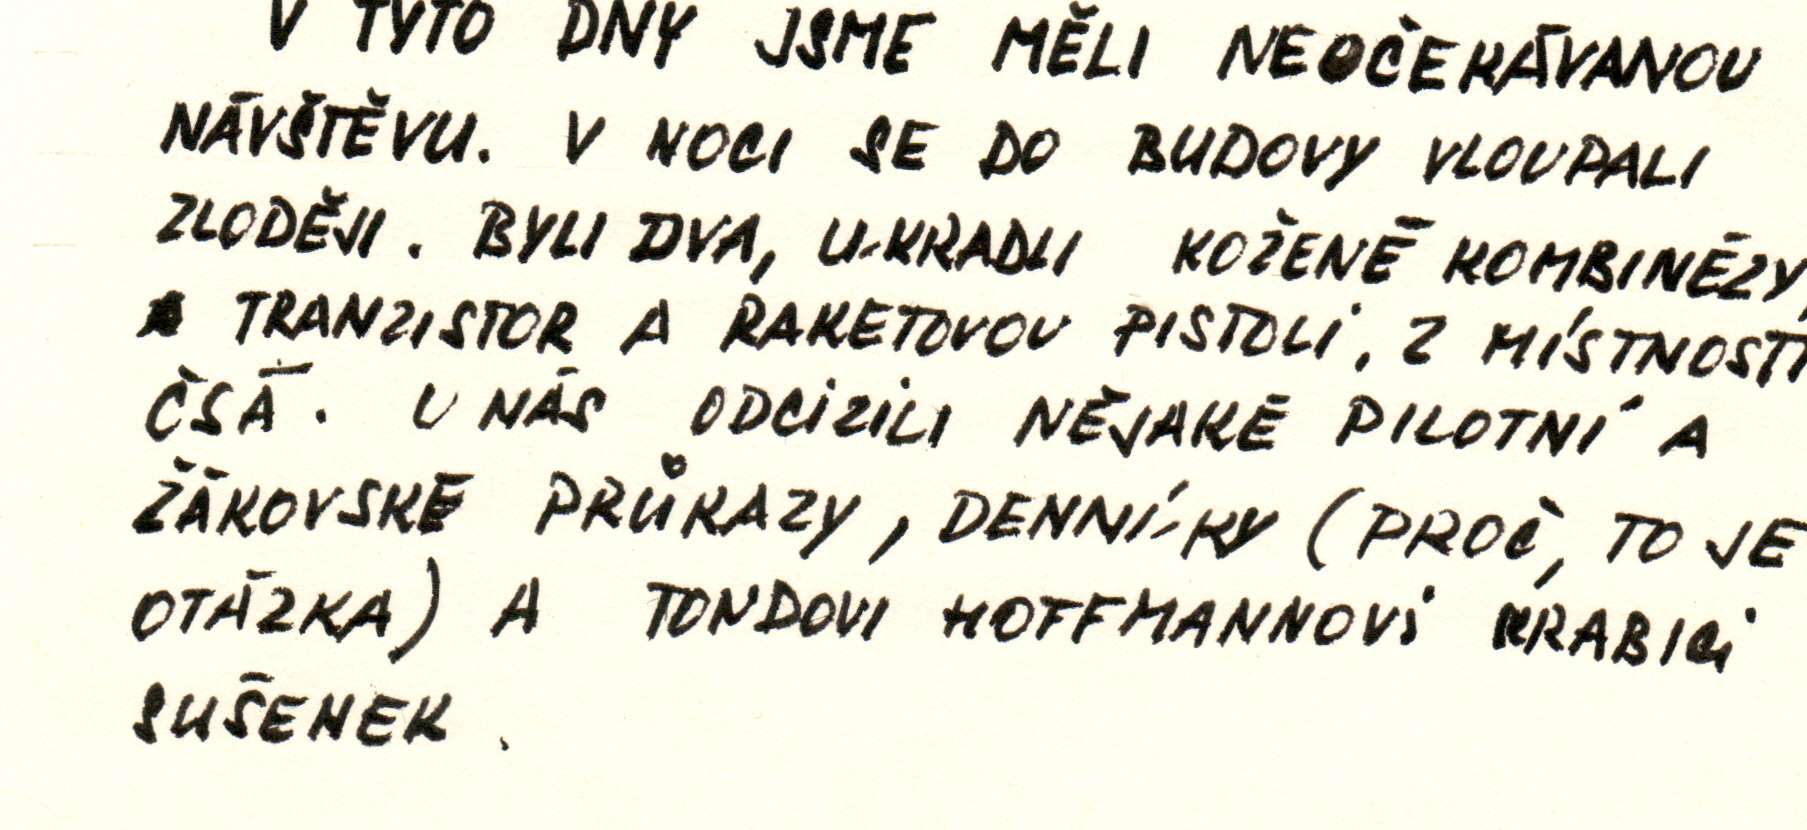 V TYTO DNY JSME MĚLI NEOČEKÁVANOU
NÁVŠTĚVU. V NOCI SE DO BUDOVY VLOUPALI
ZLODĚJI. BYLI DVA, UKRADLI KOŽENÉ KOMBINÉZY,
TRANZISTOR A RAKETOVOU PISTOLI, Z MÍSTNOSTI
ČSA. U NÁS ODCIZILI NĚJAKÉ PILOTNÍ A
ŽÁKOVSKÉ PRŮKAZY, DENNÍKY (PROČ, TO JE
OTÁZKA) A TONDOVI HOFFMANNOVI KRABICI
SUŠENEK.